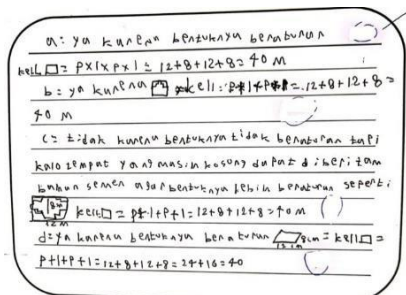 a: ya karena bentuknya beraturan
kell □ = p×l×p×l = 12+8+12+8= 40 M
b: ya karena kell: p+l+p+l = .12+8+12+8=
40 M
c= tidak karena bentuknya tidak beraturan tapi
kalo tempat yang masih kosong dapat diberi tam
bahan semen agar bentuknya lebih beraturan seperti
8m kell □ = p+l+p+l = 12+8+12+8=40m
12m
d=ya karena bentuknya beraturan 8cm = kell □ =
p+l+p+l=12+8+12+8=24+16=40